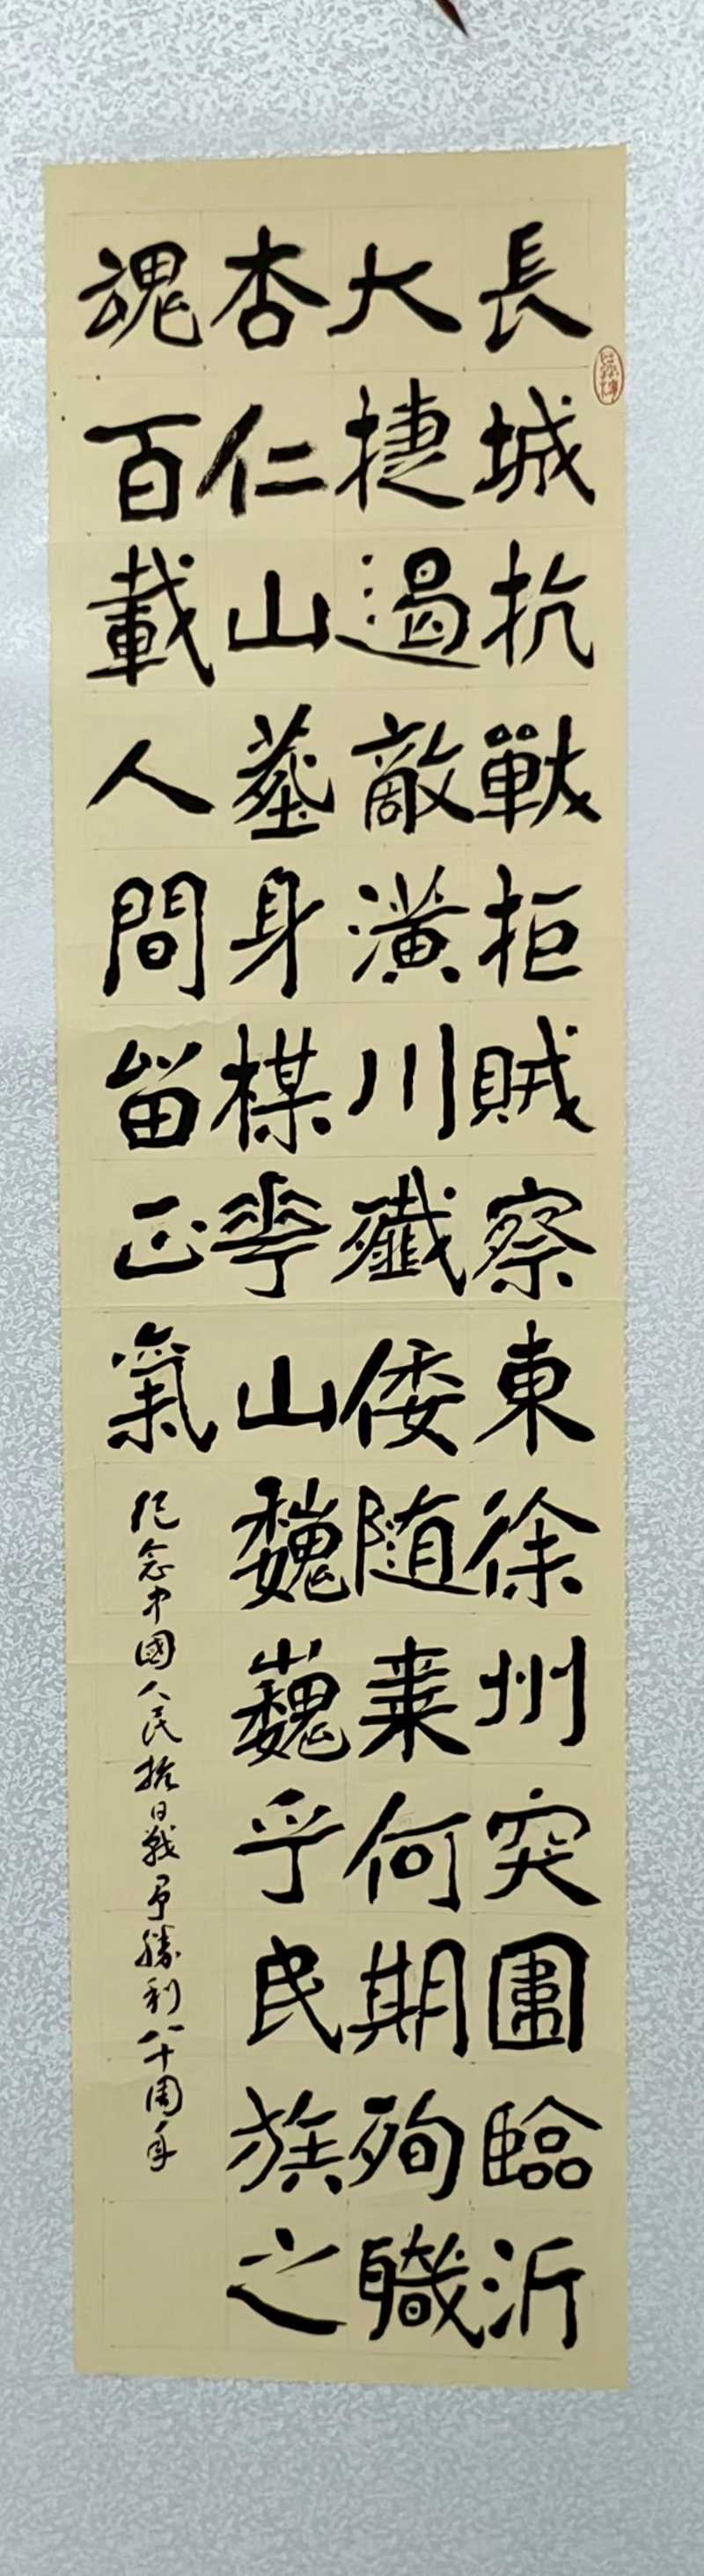 長城抗戰拒賊察東徐州突圍臨沂
大捷遏敵潢川殲倭随棗何期殉職
杏仁山墓身楳花山巍巍乎民族之
魂百載人間留正氣
纪念中國人民抗日戰争勝利八十周年